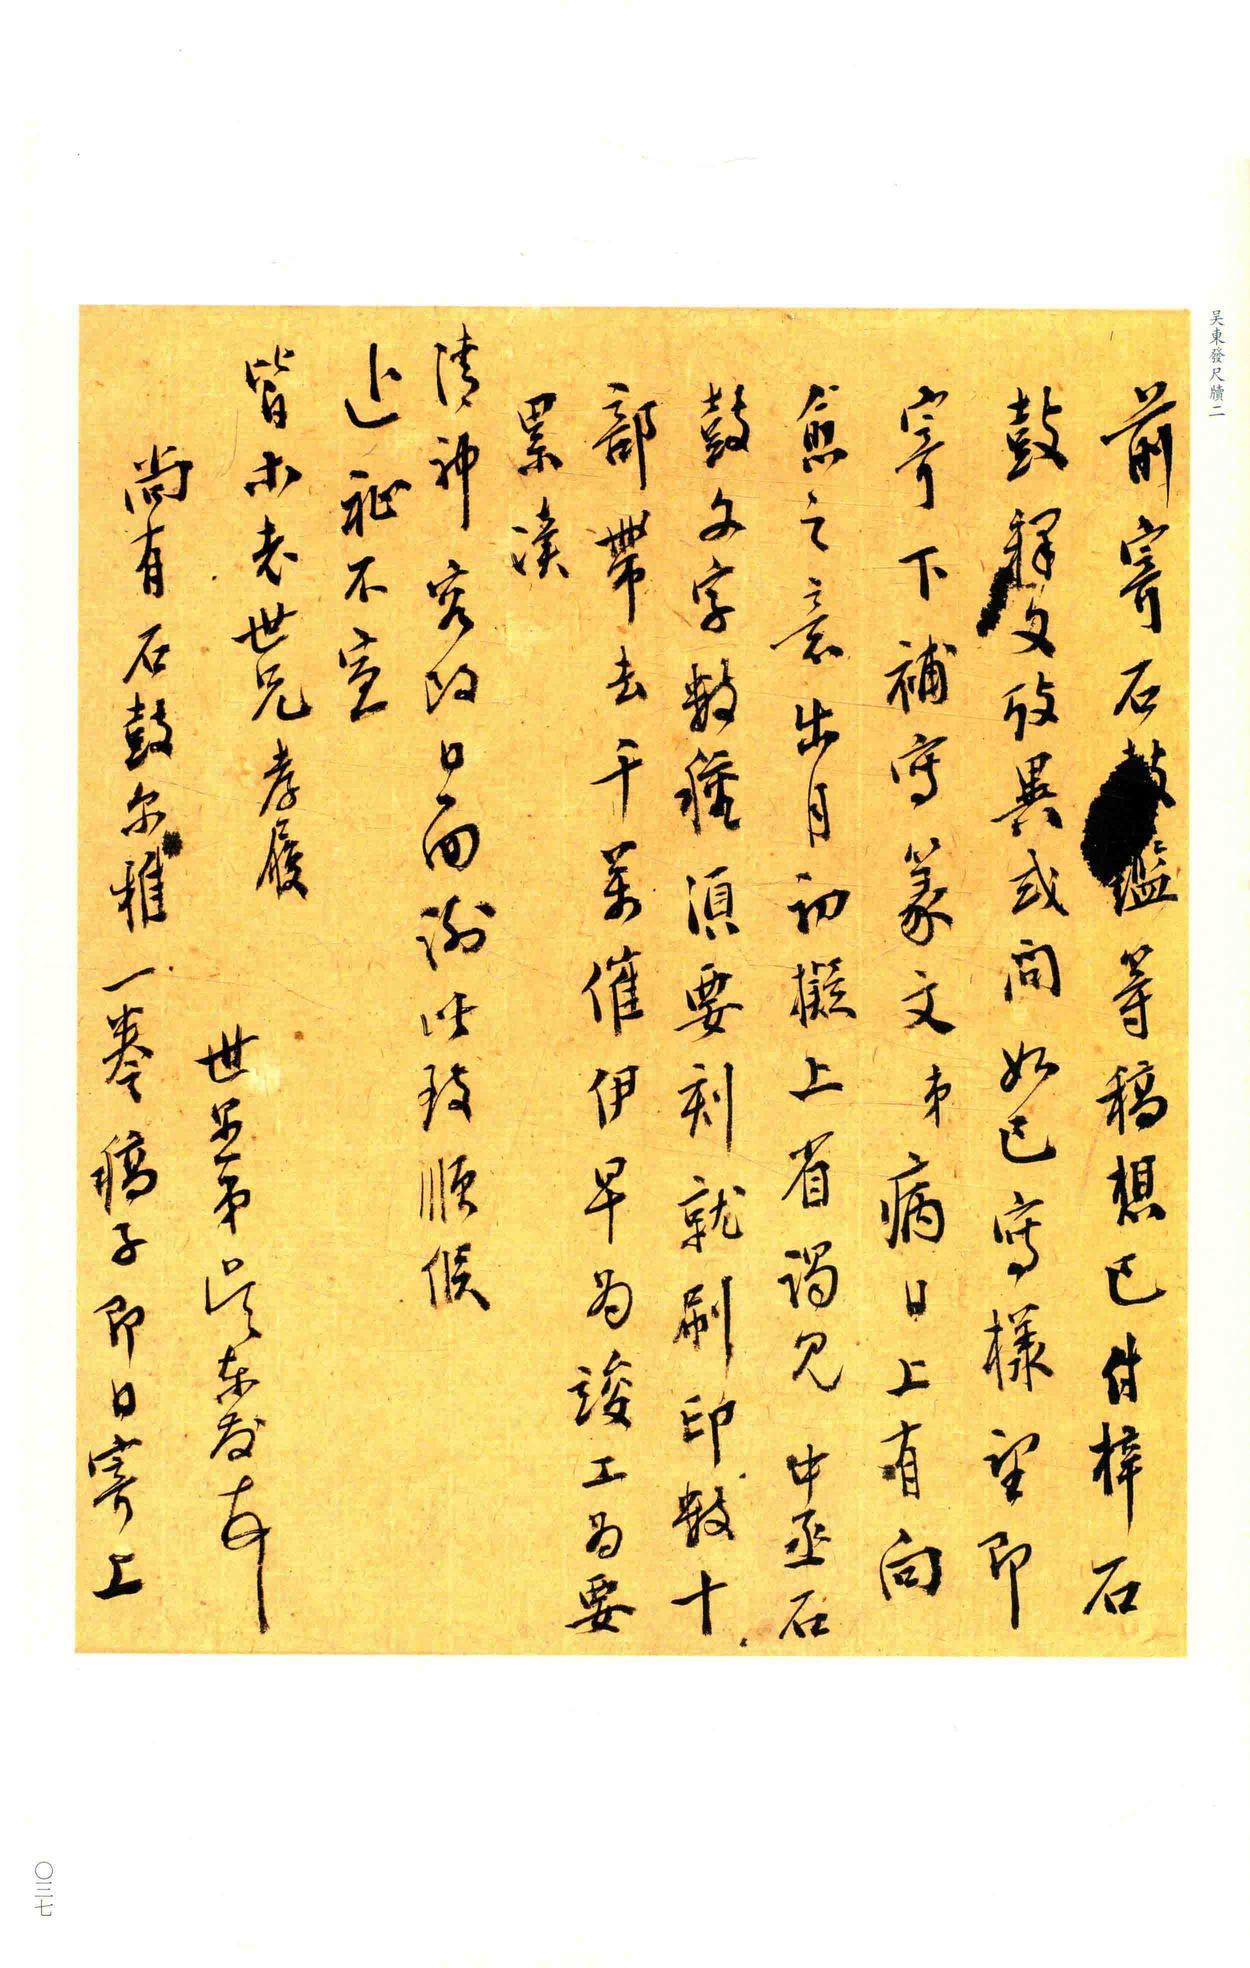 吴東發尺牘二
前寄石鼓鑑等稿想已付梓石
鼓釋文攷異或問如已寫樣望即
寄下補寫篆文弟病日上有向
愈之意出月初擬上省謁見中丞石
鼓文字數種須要刻就刷印數十
部帶去千萬催伊早為竣工為要
累瀆
清神容改日面謝此致順候
近祉不宣
皆木老世兄孝履
世愚弟吳東發
尚有石鼓尔雅一卷稿子即日寄上
〇三七